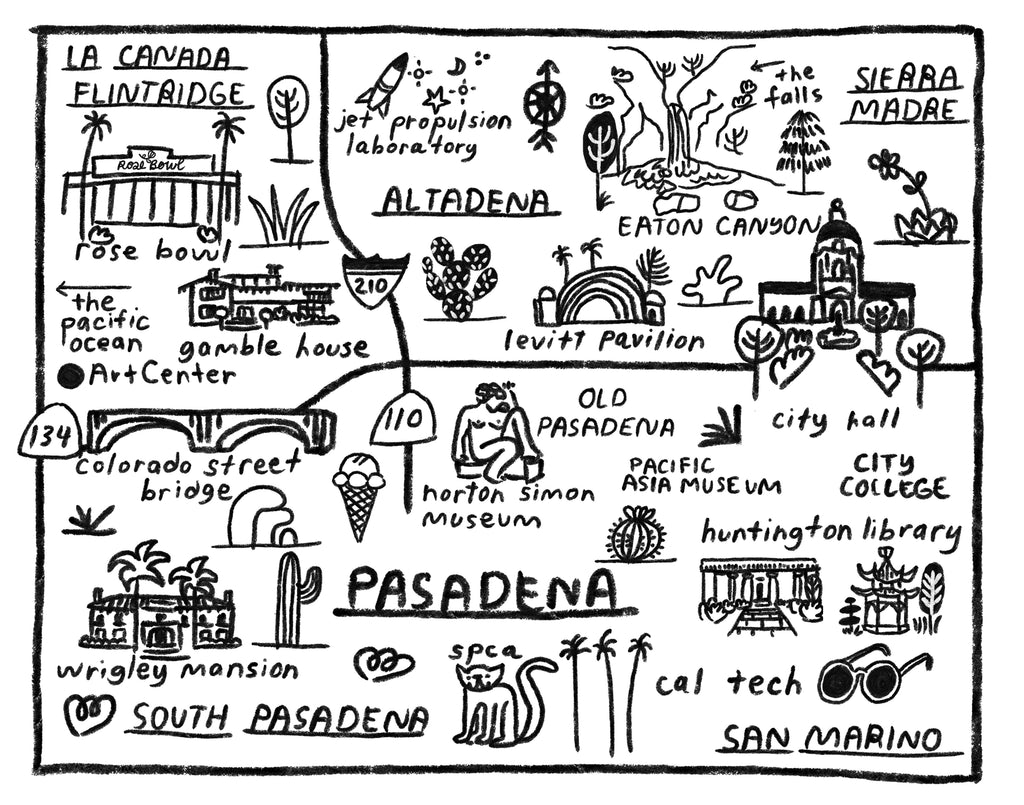 LA CANADA
FLINTRIDGE
Rose Bowl
rose bowl
the
pacific
ocean
gamble house
ArtCenter
jet propulsion
laboratory
the
falls
SIERRA
MADRE
ALTADENA
EATON CANYON
210
levitt pavilion
city hall
134
110
colorado street
bridge
OLD
PASADENA
norton simon
museum
PACIFIC
ASIA MUSEUM
CITY
COLLEGE
huntington library
PASADENA
wrigley mansion
spca
cal tech
SOUTH PASADENA
SAN MARINO